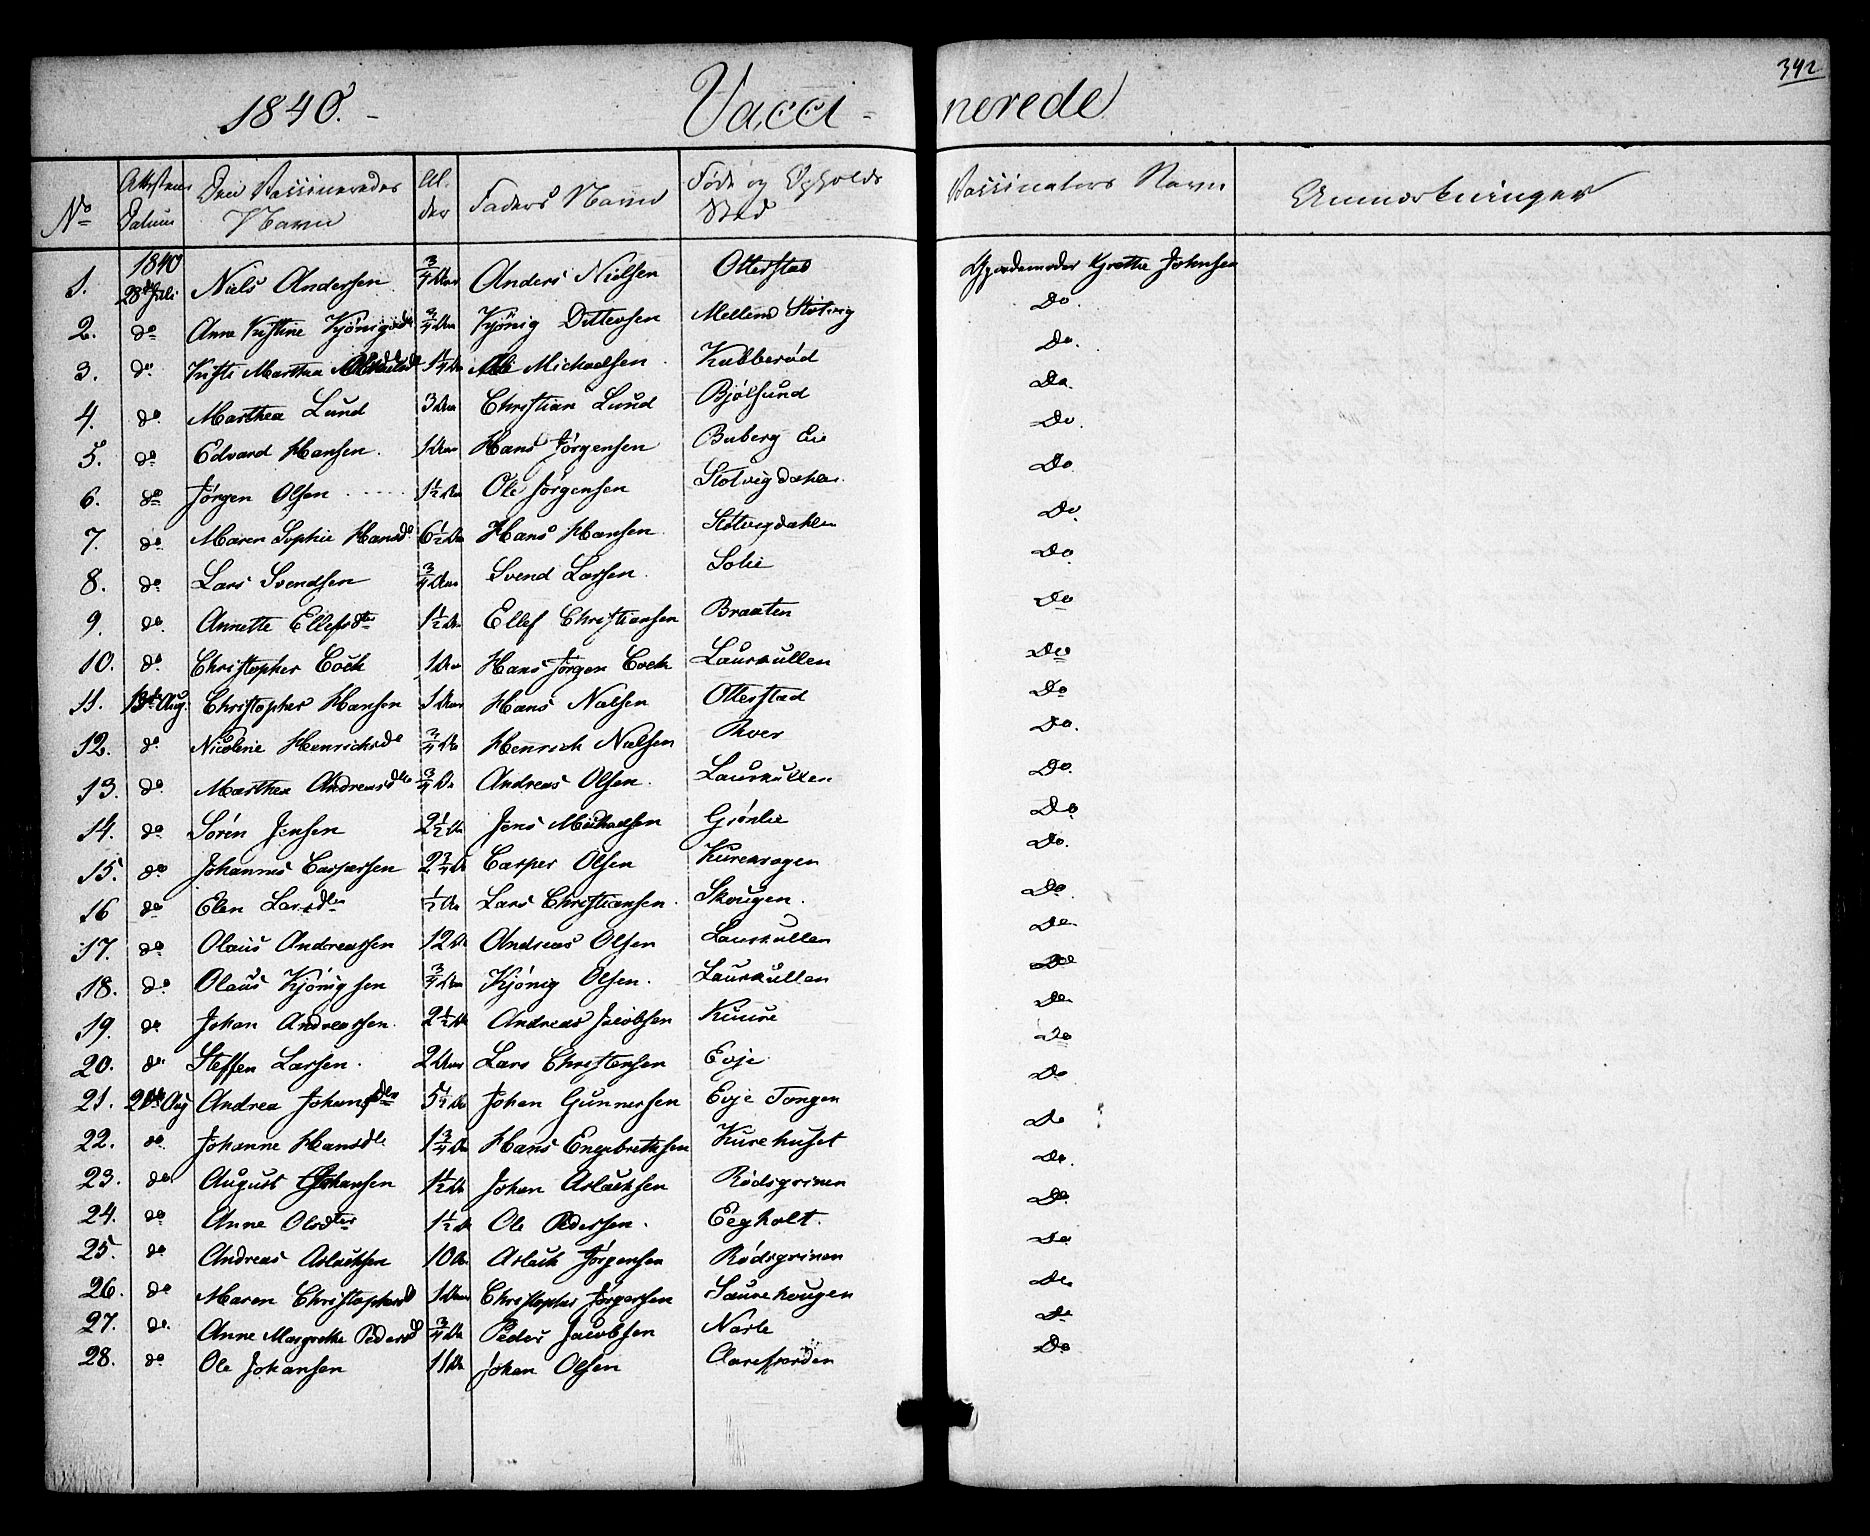 342
1840. - Vacci- nerede
No Attestens Datum Den Vaccineredes Navn Alder Faders Navn Føde og Opholds Sted Vaccinators Navn Anmærkninger
1840
1. 28de Juli Niels Andersen 3/4 Aar Anders Nielsen Otterstad Gjordemoder Grethe Johnsen
2. do Anne Kristine Kjönigsdr 3/4 Aar Kjönig Ditlevsen Mellem Slotvig Do.
3. do Martha 1 1/4 Aar Ole Michaelsen Kubberød Do.
4. do Marthea Lund 3 Aar Christian Lund Bjølsund Do.
5. do Edvard Hansen. 1 Aar Hans Jørgensen Buberg Eie Do.
6. do Jørgen Olsen 1 1/2 Aar Ole Jørgensen Slotvigdahlen. Do
7. do Maren Sophie Hansd 6 1/2 Aar Hans Hansen. Slotvigdahlen Do.
8. do Lars Svendsen 3/4 Aar Svend Larsen. Solie Do
9. do. Annette Ellefsdtr 1 1/2 Aar Ellef Christiansen Braaten Do
10. do. Christopher Cock 1 Aar Hans Jørgen Cock Laurkullen Do
11. 13de Aug. Christopher Hansen 1 Aar Hans Nielsen Otterstad Do
12. do Nicoline Henrichsdr 3/4 Aar Henrich Nielsen Rver Do.
13. do. Marthea Andreasdtr 3/4 Aar Andreas Olsen. Laurkullen Do.
14. do Sören Jensen 2 1/2 Aar Jens Michaelsen Grönlie Do
15. do Johannes Caspersen 2 3/4 Aar Casper Olsen Kurehaugen Do.
16 do Elen Larsdtr 1/2 Aar Lars Christiansen. Skougen. Do
17. do Olaus Andreassen 12 Aar Andreas Olsen Laurkullen Do
18. do Olaus Kjönigsen 3/4 Aar Kjönig Olsen. Laurkullen Do
19. do Johan Andreassen. 2 1/2 Aar Andreas Jacobsen Kuure Do
20. do Steffen Larsen. 2 Aar Lars Christensen Evje Do
21. Aug Andrea Johansdtr 5 1/2 Aar Johan Gunnersen Evje Tangen Do
22. do Johanne Hansdtr 1 3/4 Aar Hans Engebrethsen Kurehuset Do
23. do August Johansen 1 1/2 Aar Johan Aslachsen Rødsgrinen Do.
24. do Anne Olsdtr 1 1/2 Aar Ole Pedersen. Eegholt. Do
25. do Andreas Aslachsen 10 Aar Aslach Jørgensen Rødsgrinen Do
26. do Maren Christophersd 1 Aar Christopher Jørgensen Saurehougen Do
27. do. Anne Margrethe Pedersd 3/4 Aar Peder Jacobsen Narte Do
28. do Ole Johansen 11 Aar Johan Olsen Aarefjorden Do